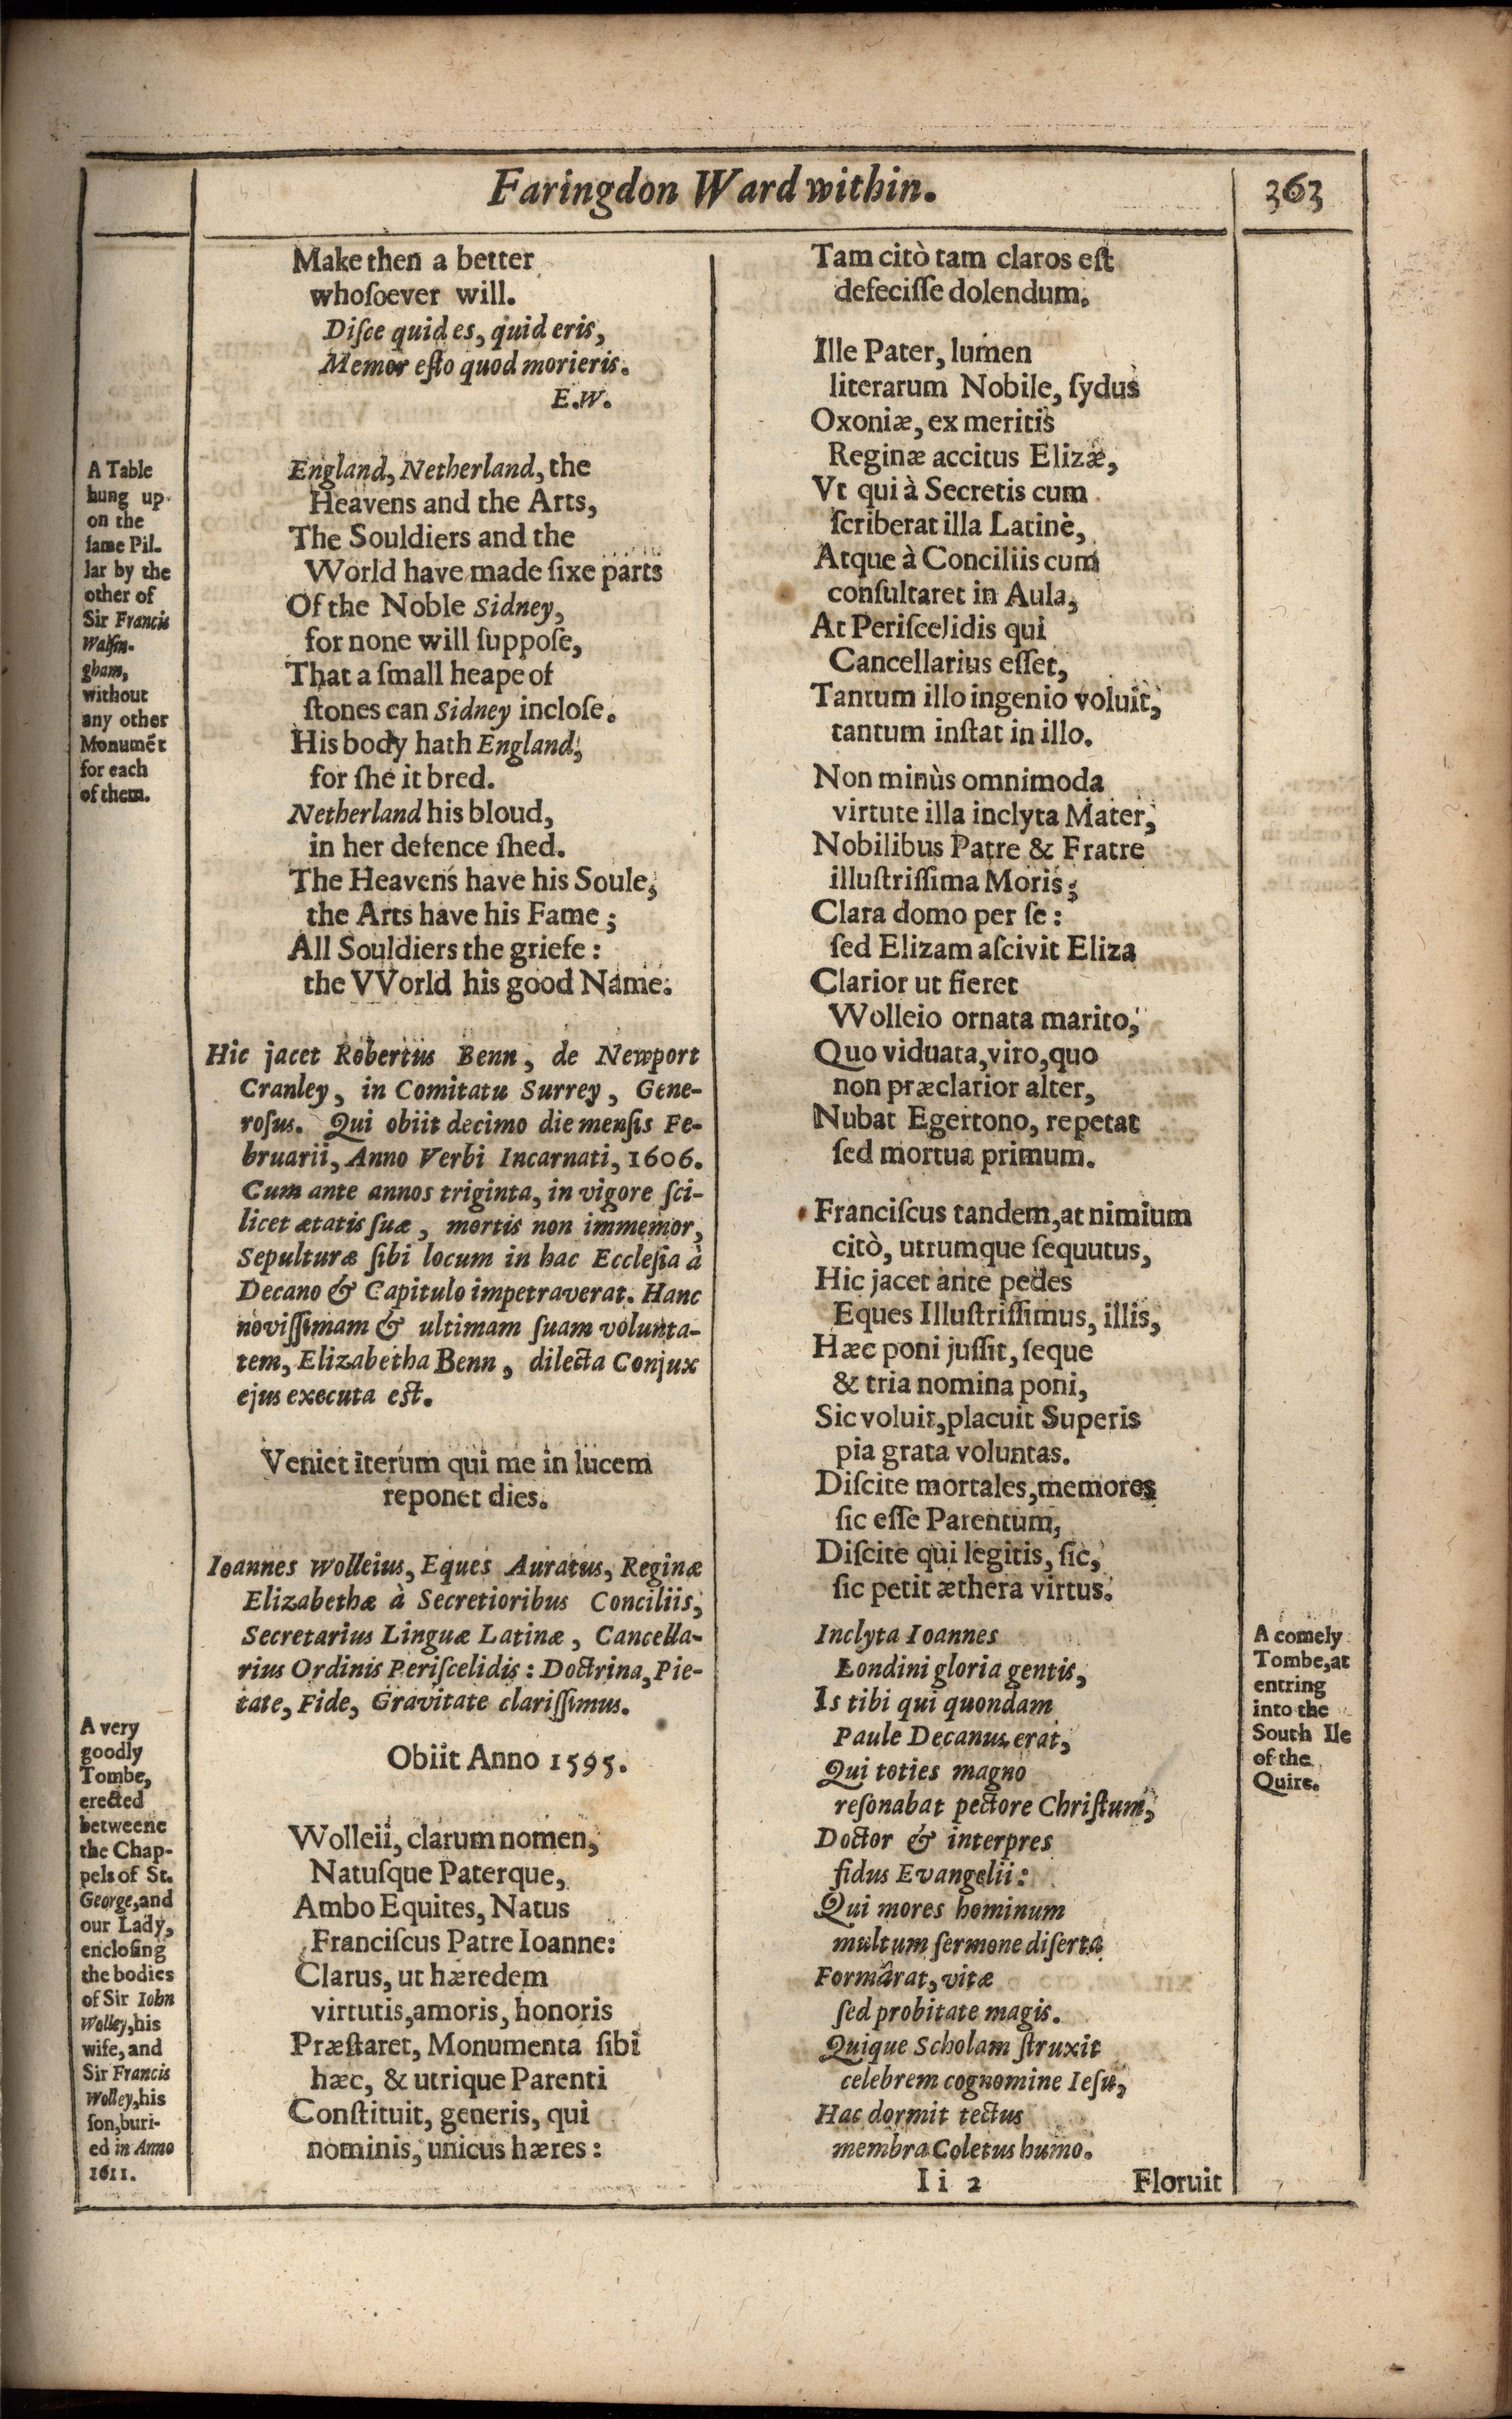 Faringdon Ward within.
363
Make then a better
whoſoever will.
Diſce quid es, quid eris,
Memor eſto quod morieris.
E.W.
A Table
hung up-
on the
ſame Pil-
lar by the
other of
Sir Francis
Walſin-
gham,
without
any other
Monumēt
for each
of them.
England, Netherland, the
Heavens and the Arts,
The Souldiers and the
World have made ſixe parts
Of the Noble Sidney,
for none will ſuppoſe,
That a ſmall heape of
ſtones can Sidney incloſe.
His body hath England,
for ſhe it bred.
Netherland his bloud,
in her defence ſhed.
The Heavens have his Soule,
the Arts have his Fame;
All Souldiers the griefe:
the VVorld his good Name.
Hic jacet Robertus Benn, de Newport
Cranley, in Comitatu Surrey, Gene-
roſus. Qui obiit decimo die menſis Fe-
bruarii, Anno Verbi Incarnati, 1606.
Cum ante annos triginta, in vigore ſci-
licet ætatis ſuæ, mortis non immemor,
Sepulturæ ſibi locum in hac Eccleſia à
Decano & Capitulo impetraverat. Hanc
noviſſimam & ultimam ſuam volunta-
tem, Elizabetha Benn, dilecta Conjux
ejus executa eſt.
Veniet iterum qui me in lucem
reponet dies.
Ioannes Wolleius, Eques Auratus, Reginæ
Elizabethæ à Secretioribus Conciliis,
Secretarius Linguæ Latinæ, Cancella-
rius Ordinis Periſcelidis: Doctrina, Pie-
tate, Fide, Gravitate clariſſimus.
Obiit Anno 1595.
A very
goodly
Tombe,
erected
betweene
the Chap-
pels of St.
George, and
our Lady,
encloſing
the bodies
of Sir Iohn
Wolley, his
wife, and
Sir Francis
Wolley, his
ſon, buri-
ed in Anno
1611.
Wolleii, clarum nomen,
Natuſque Paterque,
Ambo Equites, Natus
Franciſcus Patre Ioanne:
Clarus, ut hæredem
virtutis, amoris, honoris
Præſtaret, Monumenta ſibi
hæc, & utrique Parenti
Conſtituit, generis, qui
nominis, unicus hæres:
Tam citò tam claros eſt
defeciſſe dolendum.
Ille Pater, lumen
literarum Nobile, ſydus
Oxoniæ, ex meritis
Reginæ accitus Elizæ,
Vt qui à Secretis cum
ſcriberat illa Latinè,
Atque à Conciliis cum
conſultaret in Aula,
At Periſcelidis qui
Cancellarius eſſet,
Tantum illo ingenio voluit,
tantum inſtat in illo.
Non minùs omnimoda
virtute illa inclyta Mater,
Nobilibus Patre & Fratre
illuſtriſſima Moris;
Clara domo per ſe:
ſed Elizam aſcivit Eliza
Clarior ut fieret
Wolleio ornata marito,
Quo viduata, viro, quo
non præclarior alter,
Nubat Egertono, repetat
ſed mortua primum.
Franciſcus tandem, at nimium
citò, utrumque ſequutus,
Hic jacet ante pedes
Eques Illuſtriſſimus, illis,
Hæc poni juſſit, ſeque
& tria nomina poni,
Sic voluit, placuit Superis
pia grata voluntas.
Diſcite mortales, memores
ſic eſſe Parentum,
Diſcite qui legitis, ſic,
ſic petit æthera virtus.
Inclyta Ioannes
Londini gloria gentis,
Is tibi qui quondam
Paule Decanus erat,
Qui toties magno
reſonabat pectore Chriſtum,
Doctor & interpres
fidus Evangelii:
Qui mores hominum
multum ſermone diſerta
Formârat, vitæ
ſed probitate magis.
Quique Scholam ſtruxit
celebrem cognomine Ieſu,
Hac dormit tectus
membra Coletus humo.
A comely
Tombe, at
entring
into the
South Ile
of the
Quire.
I i 2
Floruit